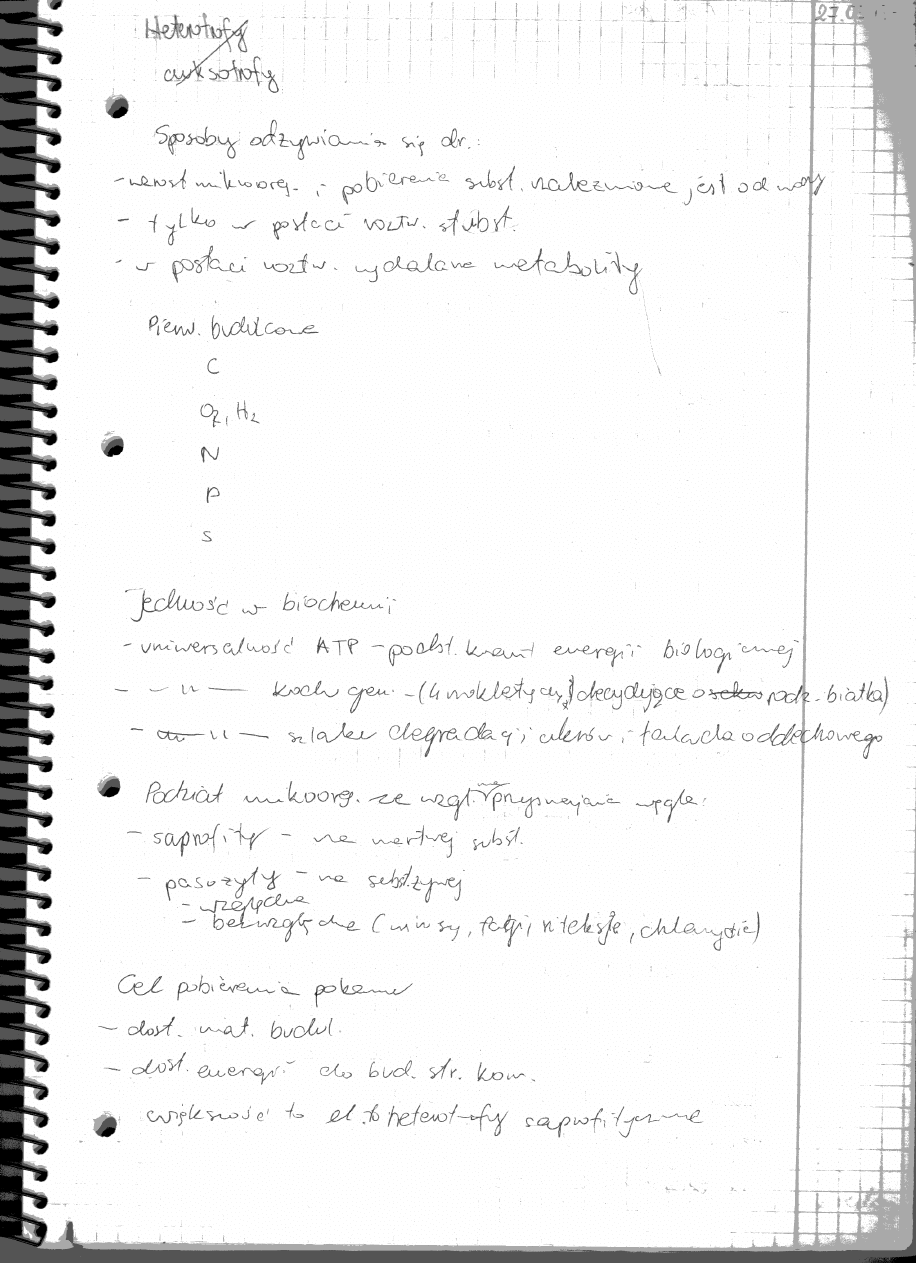 27.0
Heterotrofy
auksotrofy
Sposoby odżywiania się dr.:
- wzrost mikroorg. i pobieranie subst. uzależnione jest od wody
- tylko w postaci roztw. subst.
- w postaci roztw. wydalane metabolity
Pierw. budulcowe
C
O2, H2
N
P
S
Jedność w biochemii
- uniwersalność ATP - podst. kwant energii biologicznej
- - 11 - kodu gen. - (4 nukletydy) decydujące o podz. białka)
- - 11 - szlaków degradacji cukrów i łańcucha oddechowego
Podział mikroorg. ze wzgl. na przyswajanie węgla:
- saprofity - na martwej subst.
- pasożyty - na subst. żywej
- względne
- bezwzględne (wirusy, fagi, riketsje, chlamydie)
Cel pobierania pokarmu
- dost. mat. budul.
- dost. energii do bud. str. kom.
większość to heterotrofy saprofityczne